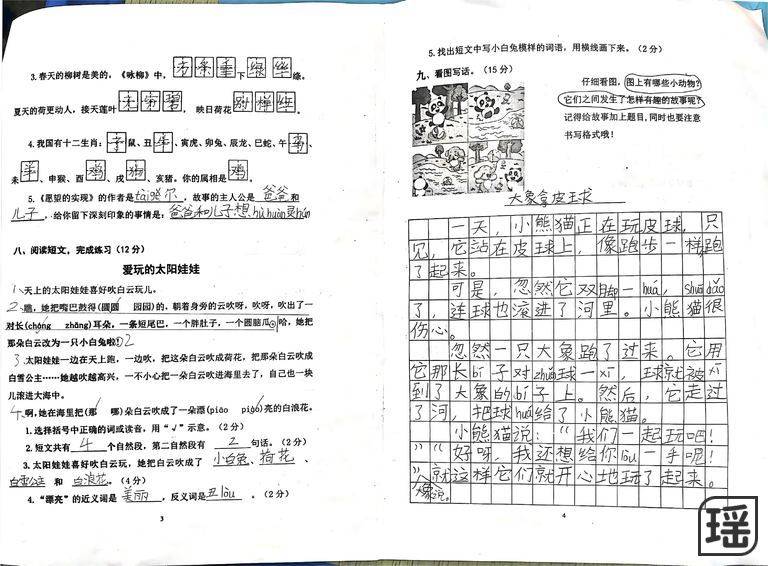 3.春天的柳树是美的。《咏柳》中,万条垂下绿丝绦。
夏天的荷更动人,接天莲叶无穷碧,映日荷花别样红。
4.我国有十二生肖:子鼠、丑牛、寅虎、卯兔、辰龙、巳蛇、午马、
未羊、申猴、酉鸡、戌狗、亥猪。你的属相是鸡。
5.《愿望的实现》的作者是tāi戈尔。故事的主人公是爸爸和
儿子,给你留下深刻印象的事情是:爸爸和儿子想hù huàn灵hún
八、阅读短文,完成练习(12分)
爱玩的太阳娃娃
1.天上的太阳娃娃喜好吹白云玩儿。
2.瞧,她把嘴巴鼓得(圆圆 园园)的,朝着身旁的云吹呀,吹呀,吹出了一
对长(cháng zhǎng)耳朵,一条短尾巴,一个胖肚子,一个圆脑瓜。哈,她把
那朵白云改为一只小白兔啦!2
3.太阳娃娃一边在天上跑,一边吹,把这朵白云吹成荷花,把那朵白云吹成
白雪公主……她越吹越高兴,一不小心把一朵白云吹进海里去了,自己也一块
儿滚进大海中。
4.啊,她在海里把(那 哪)朵白云吹成了一朵漂(piāo piào)亮的白浪花。
1.选择括号中正确的词或读音,用“√”示意。(2分)
2.短文共有4个自然段,第二自然段有2句话。(2分)
3.太阳娃娃喜好吹白云玩,她把白云吹成了小白兔、荷花、
白雪公主和白浪花。(4分)
4.“漂亮”的近义词是美丽,反义词是丑lòu。(2分)
3
5.找出短文中写小白兔模样的词语,用横线画下来。(2分)
九、看图写话。(15分)
仔细看图,图上有哪些小动物?
它们之间发生了怎样有趣的故事呢?
记得给故事加上题目,同时也要注意
书写格式哦!
大象拿皮球
一天,小熊猫正在玩皮球,只
见,它站在皮球上,像跑步一样跑
了起来。
可是,忽然它双脚一huá,shuāi dǎo
了,连球也滚进了河里。小熊猫很
伤心。
忽然一只大象跑了过来。它用
它那长bí子对zhǔn球一xī,球就被xī
到了大象的bí子上。然后,它走过
了河,把球huán给了小熊猫。
小熊猫说:“我们一起玩吧!
”“好呀,我还想给你lòu一手呢!
”就这样它们就开心地玩了起来。
大象说。
4
瑶